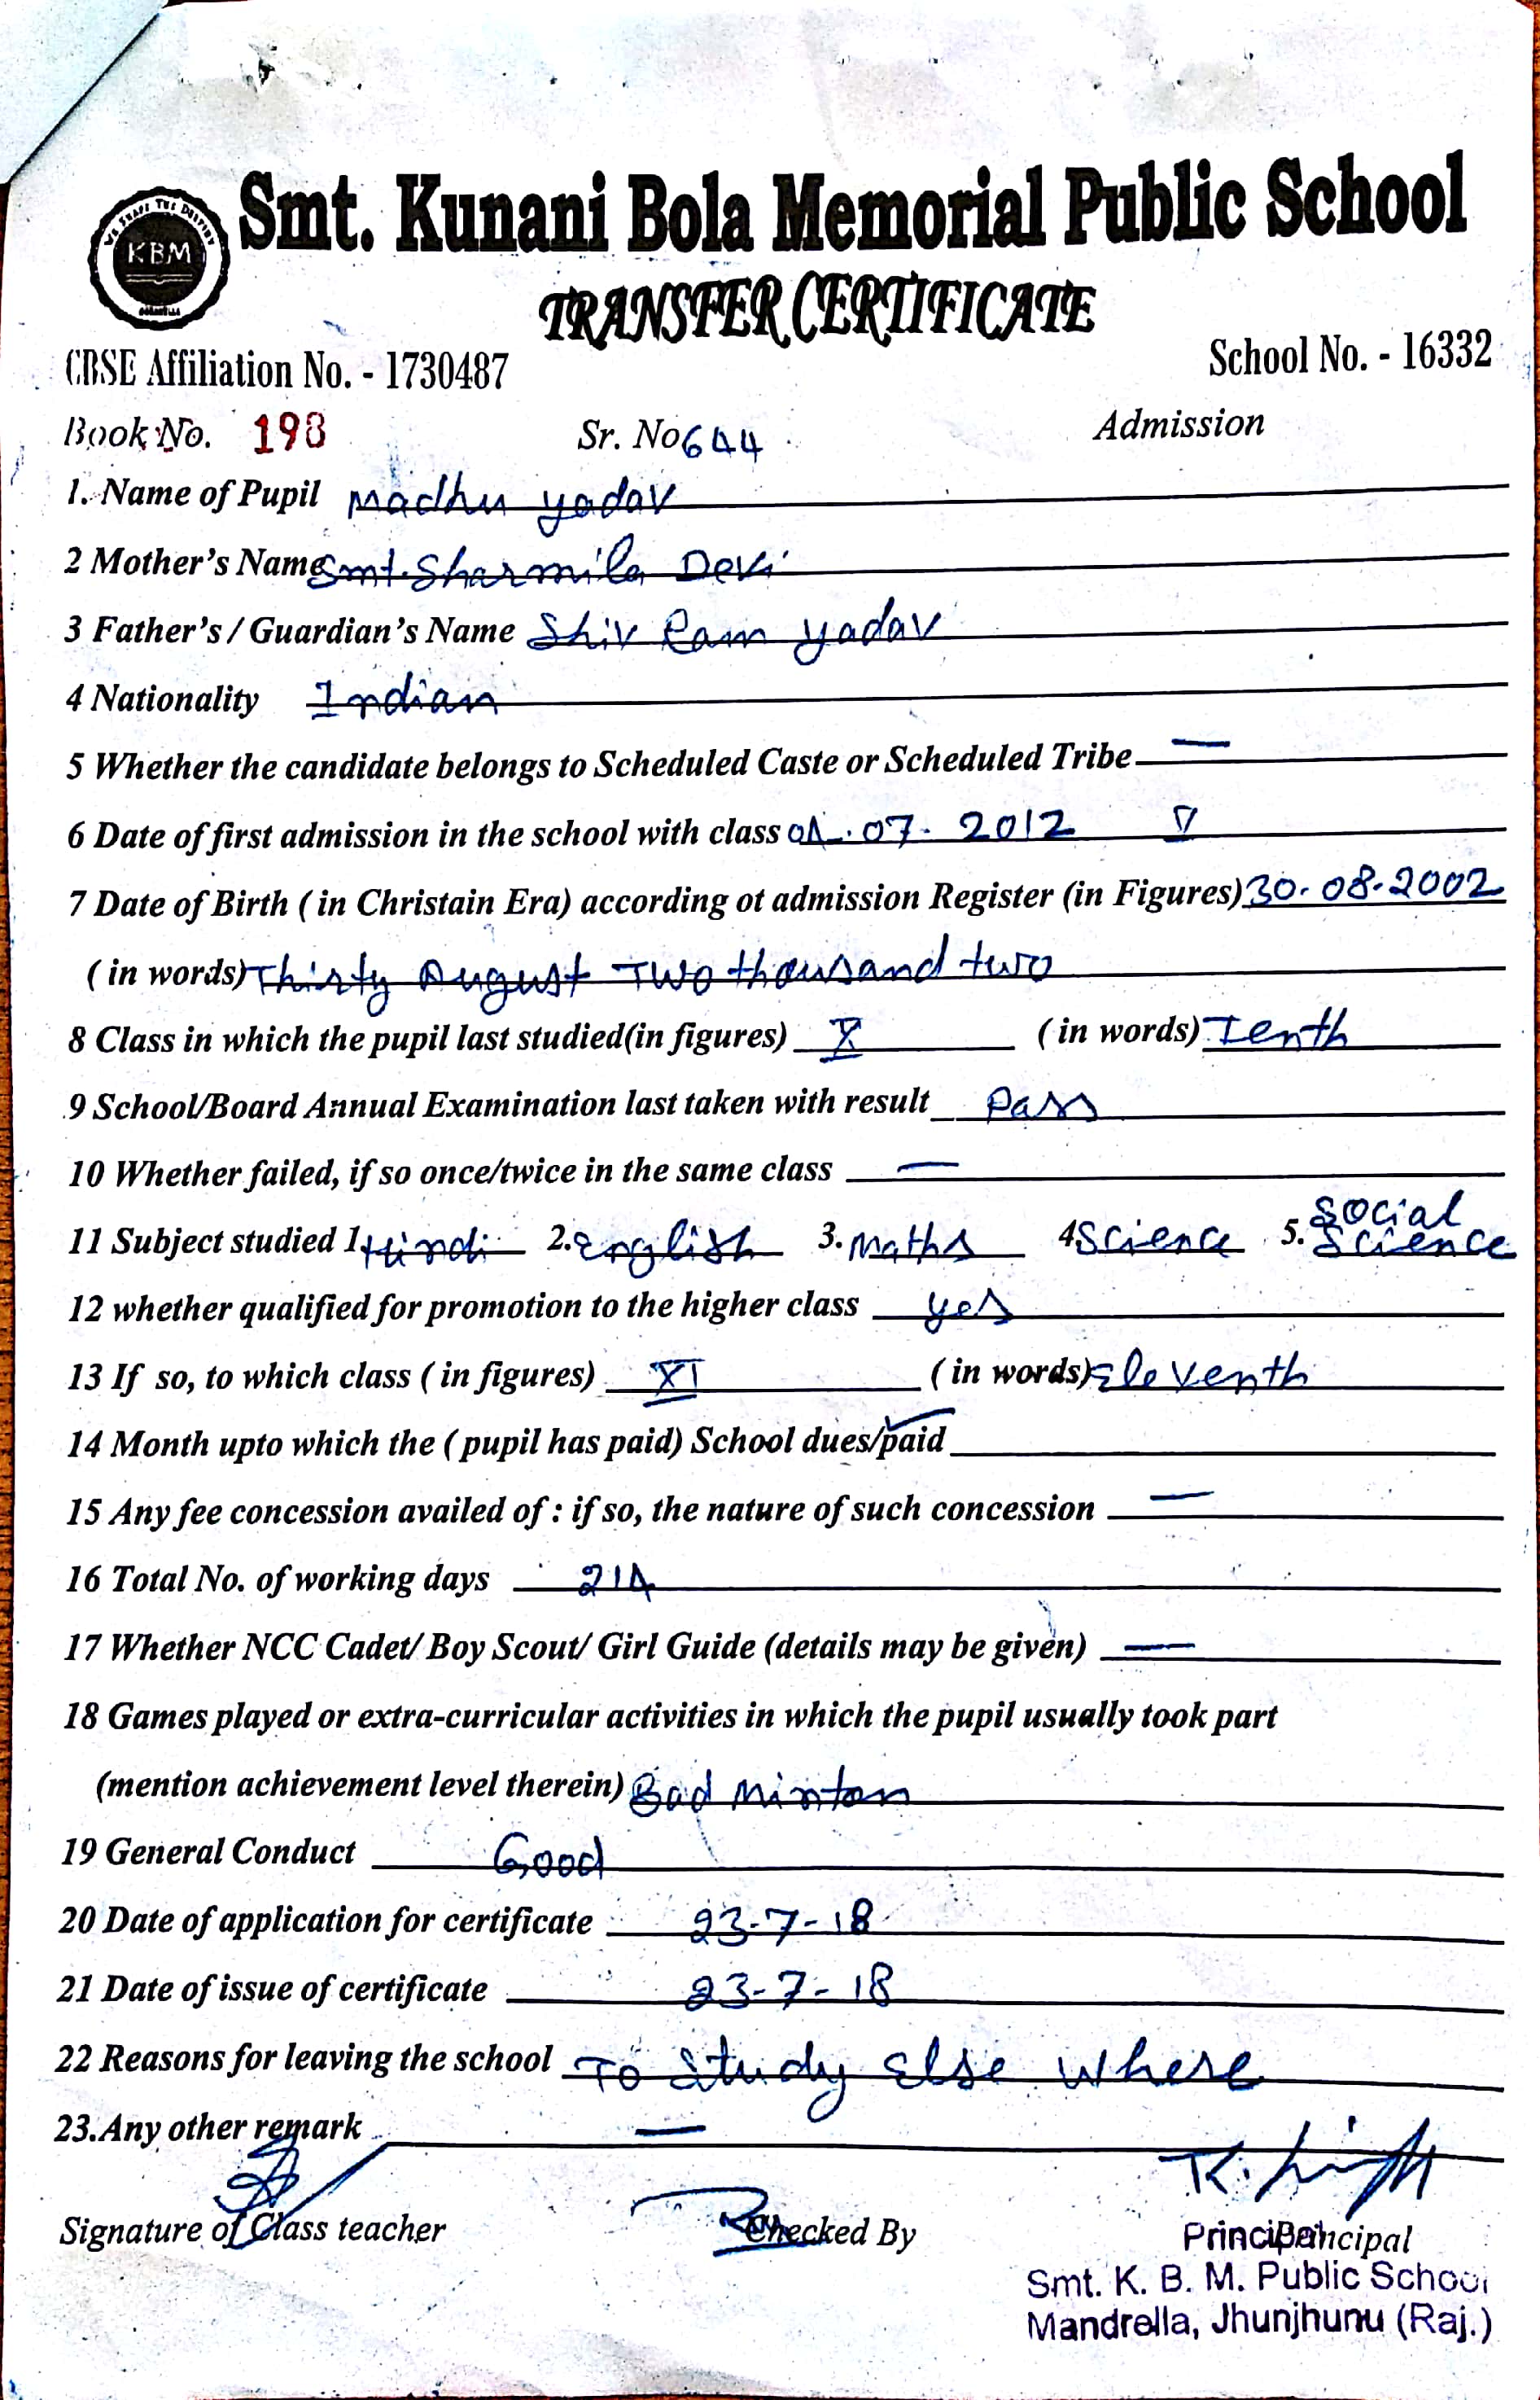 WE SHAPE THE DESTINY
KBM
Smt. Kunani Bola Memorial Public School
TRANSFER CERTIFICATE
CBSE Affiliation No. - 1730487 School No. - 16332
Book No. 198 Sr. No 644 Admission
1. Name of Pupil Madhu yadav
2 Mother's Name Smt. Sharmila Devi
3 Father's / Guardian's Name Shiv Ram yadav
4 Nationality Indian
5 Whether the candidate belongs to Scheduled Caste or Scheduled Tribe —
6 Date of first admission in the school with class 01.07.2012 V
7 Date of Birth ( in Christain Era) according ot admission Register (in Figures) 30.08.2002
( in words) Thirty August Two thousand two
8 Class in which the pupil last studied(in figures) X ( in words) Tenth
9 School/Board Annual Examination last taken with result Pass
10 Whether failed, if so once/twice in the same class —
11 Subject studied 1. Hindi 2. English 3. Maths 4 Science 5. Social Science
12 whether qualified for promotion to the higher class yes
13 If so, to which class ( in figures) XI ( in words) Eleventh
14 Month upto which the ( pupil has paid) School dues/paid
15 Any fee concession availed of : if so, the nature of such concession —
16 Total No. of working days 214
17 Whether NCC Cadet/ Boy Scout/ Girl Guide (details may be given) —
18 Games played or extra-curricular activities in which the pupil usually took part
(mention achievement level therein) Bad Minton
19 General Conduct Good
20 Date of application for certificate 23-7-18
21 Date of issue of certificate 23-7-18
22 Reasons for leaving the school To Study Else Where
23. Any other remark —
Signature of Class teacher Checked By Principal
Principal
Smt. K. B. M. Public School
Mandrella, Jhunjhunu (Raj.)